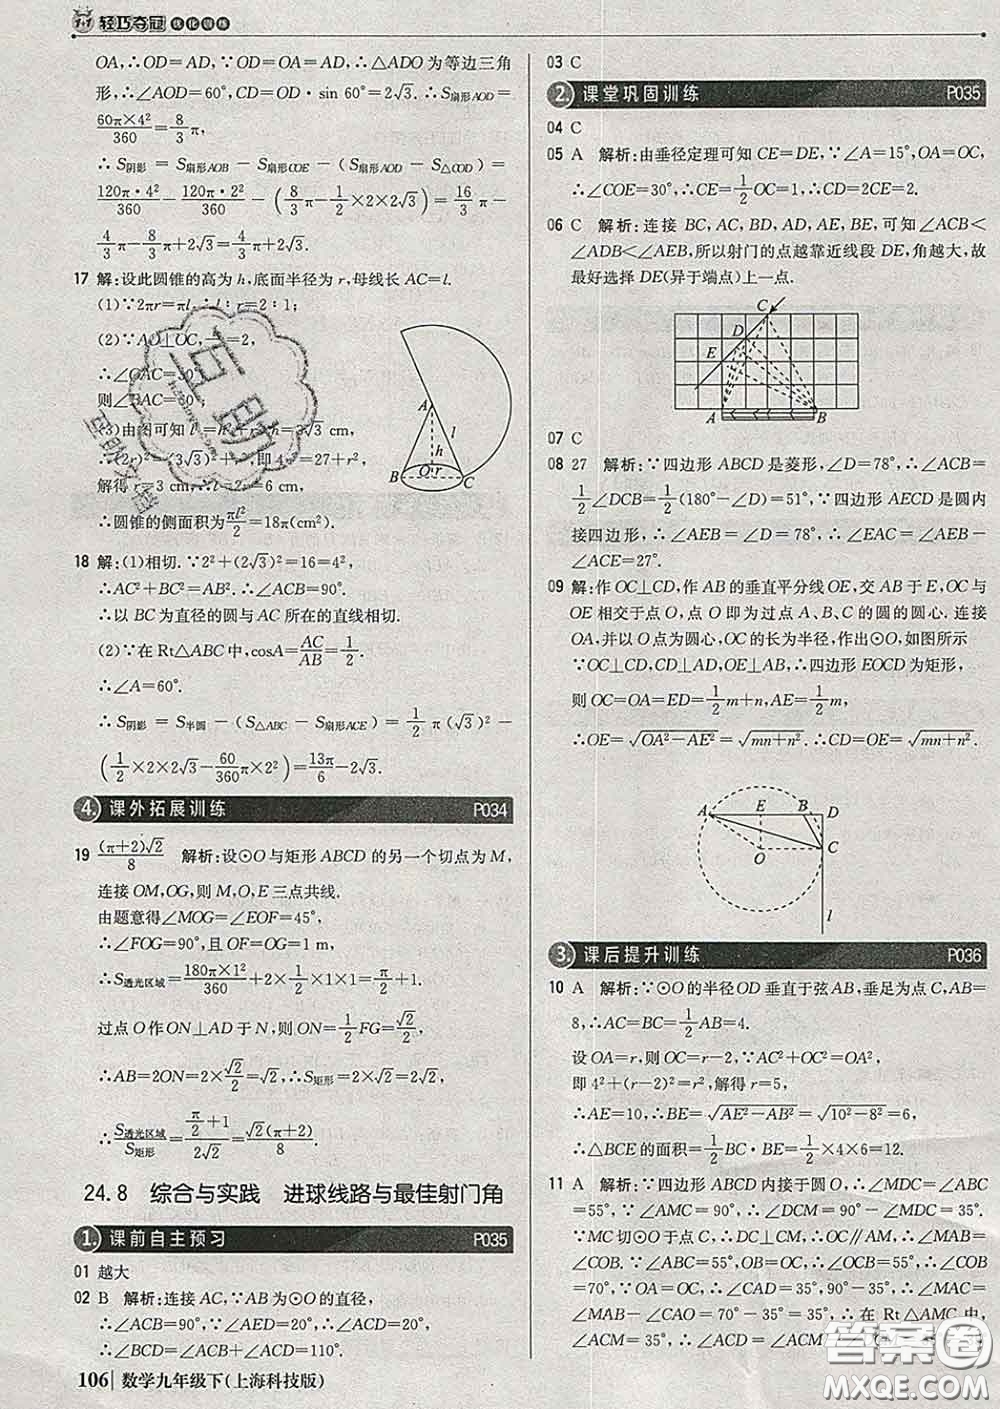 1+1 轻巧夺冠 优化训练
OA,∴OD=AD,∵OD=OA=AD,∴△ADO为等边三角
形,∴∠AOD=60°,CD=OD·sin 60°=2√3.∴S扇形AOD=
60π×4²/360=8/3π,
∴S阴影=S扇形AOB-S扇形COE-(S扇形AOD-S△COD)=
120π·4²/360-120π·2²/360-(8/3π-1/2×2×2√3)=16/3π-
4/3π-8/3π+2√3=4/3π+2√3.
17 解:设此圆锥的高为h,底面半径为r,母线长AC=l.
(1)∵2πr=πl,∴l:r=2:1;
(2)∵AO⊥OC, =2,
∴∠OAC=30°
则∠BAC=60°;
(3)由图可知l =h +r ,h=3√3 cm,
∴(2r)²=(3√3)²+r²,即4r²=27+r²,
解得r=3 cm,∴l=2r=6 cm,
∴圆锥的侧面积为πl²/2=18π(cm²).
A
l
h
B
O
r
C
18 解:(1)相切.∵2²+(2√3)²=16=4²,
∴AC²+BC²=AB².∴∠ACB=90°.
∴以BC为直径的圆与AC所在的直线相切.
(2)∵在Rt△ABC中,cosA=AC/AB=1/2.
∴∠A=60°.
∴S阴影=S半圆-(S△ABC-S扇形ACE)=1/2π(√3)²-
(1/2×2×2√3-60/360π×2²)=13π/6-2√3.
4. 课外拓展训练 P034
19 (π+2)√2/8 解析:设⊙O与矩形ABCD的另一个切点为M,
连接OM,OG,则M,O,E三点共线.
由题意得∠MOG=∠EOF=45°,
∴∠FOG=90°,且OF=OG=1 m,
∴S透光区域=180π×1²/360+2×1/2×1×1=(π/2+1)m².
过点O作ON⊥AD于N,则ON=1/2FG=√2/2,
∴AB=2ON=2×√2/2=√2,∴S矩形=2×√2=2√2.
∴S透光区域/S矩形=(π/2+1)/2√2=√2(π+2)/8.
24.8 综合与实践 进球线路与最佳射门角
1. 课前自主预习 P035
01 越大
02 B 解析:连接AC,∵AB为⊙O的直径,
∴∠ACB=90°,∵∠AED=20°,∴∠ACD=20°,
∴∠BCD=∠ACB+∠ACD=110°.
106 数学九年级下(上海科技版)
03 C
2. 课堂巩固训练 P035
04 C
05 A 解析:由垂径定理可知CE=DE,∵∠A=15°,OA=OC,
∴∠COE=30°,∴CE=1/2OC=1,∴CD=2CE=2.
06 C 解析:连接BC,AC,BD,AD,AE,BE,可知∠ACB<
∠ADB<∠AEB,所以射门的点越靠近线段DE,角越大,故
最好选择DE(异于端点)上一点.
C
D
E
A
B
07 C
08 27 解析:∵四边形ABCD是菱形,∠D=78°,∴∠ACB=
1/2∠DCB=1/2(180°-∠D)=51°,∵四边形AECD是圆内
接四边形,∴∠AEB=∠D=78°,∴∠EAC=∠AEB-
∠ACE=27°.
09 解:作OC⊥CD,作AB的垂直平分线OE,交AB于E,OC与
OE相交于点O,点O即为过点A、B、C的圆的圆心.连接
OA,并以O点为圆心,OC的长为半径,作出⊙O,如图所示
∵OC⊥CD,CD⊥AD,OE⊥AB,∴四边形EOCD为矩形,
则OC=OA=ED=1/2m+n,AE=1/2m,
∴OE=√(OA²-AE²)=√(mn+n²).∴CD=OE=√(mn+n²).
A
E
B
D
O
C
l
3. 课后提升训练 P036
10 A 解析:∵⊙O的半径OD垂直于弦AB,垂足为点C,AB=
8,∴AC=BC=1/2AB=4.
设OA=r,则OC=r-2,∵AC²+OC²=OA²,
即4²+(r-2)²=r²,解得r=5,
∴AE=10,∴BE=√(AE²-AB²)=√(10²-8²)=6,
∴△BCE的面积=1/2BC·BE=1/2×4×6=12.
11 A 解析:∵四边形ABCD内接于圆O,∴∠MDC=∠ABC
=55°,∵∠AMC=90°,∴∠DCM=90°-∠MDC=35°.
∵MC切⊙O于点C,∴DC⊥CM,∴∠MAC=∠MAB=
∠COB.∵∠ABC=55°,OB=OC,∴∠OCB=55°,∴∠COB
=70°.∵OA=OC,∴∠CAD=35°,∴∠MCA=∠MAC=
∠MAB-∠CAO=70°-35°=35°,∴在Rt△AMC中,
∠ACM=35°,∴∠ACD=∠ACM
答案圈
MXQE.COM